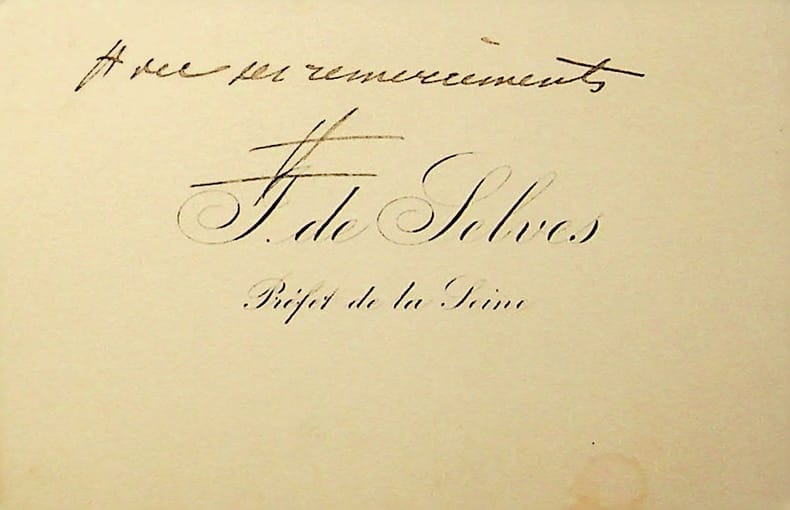 Avec ses remerciements
J. de Selves
Préfet de la Seine